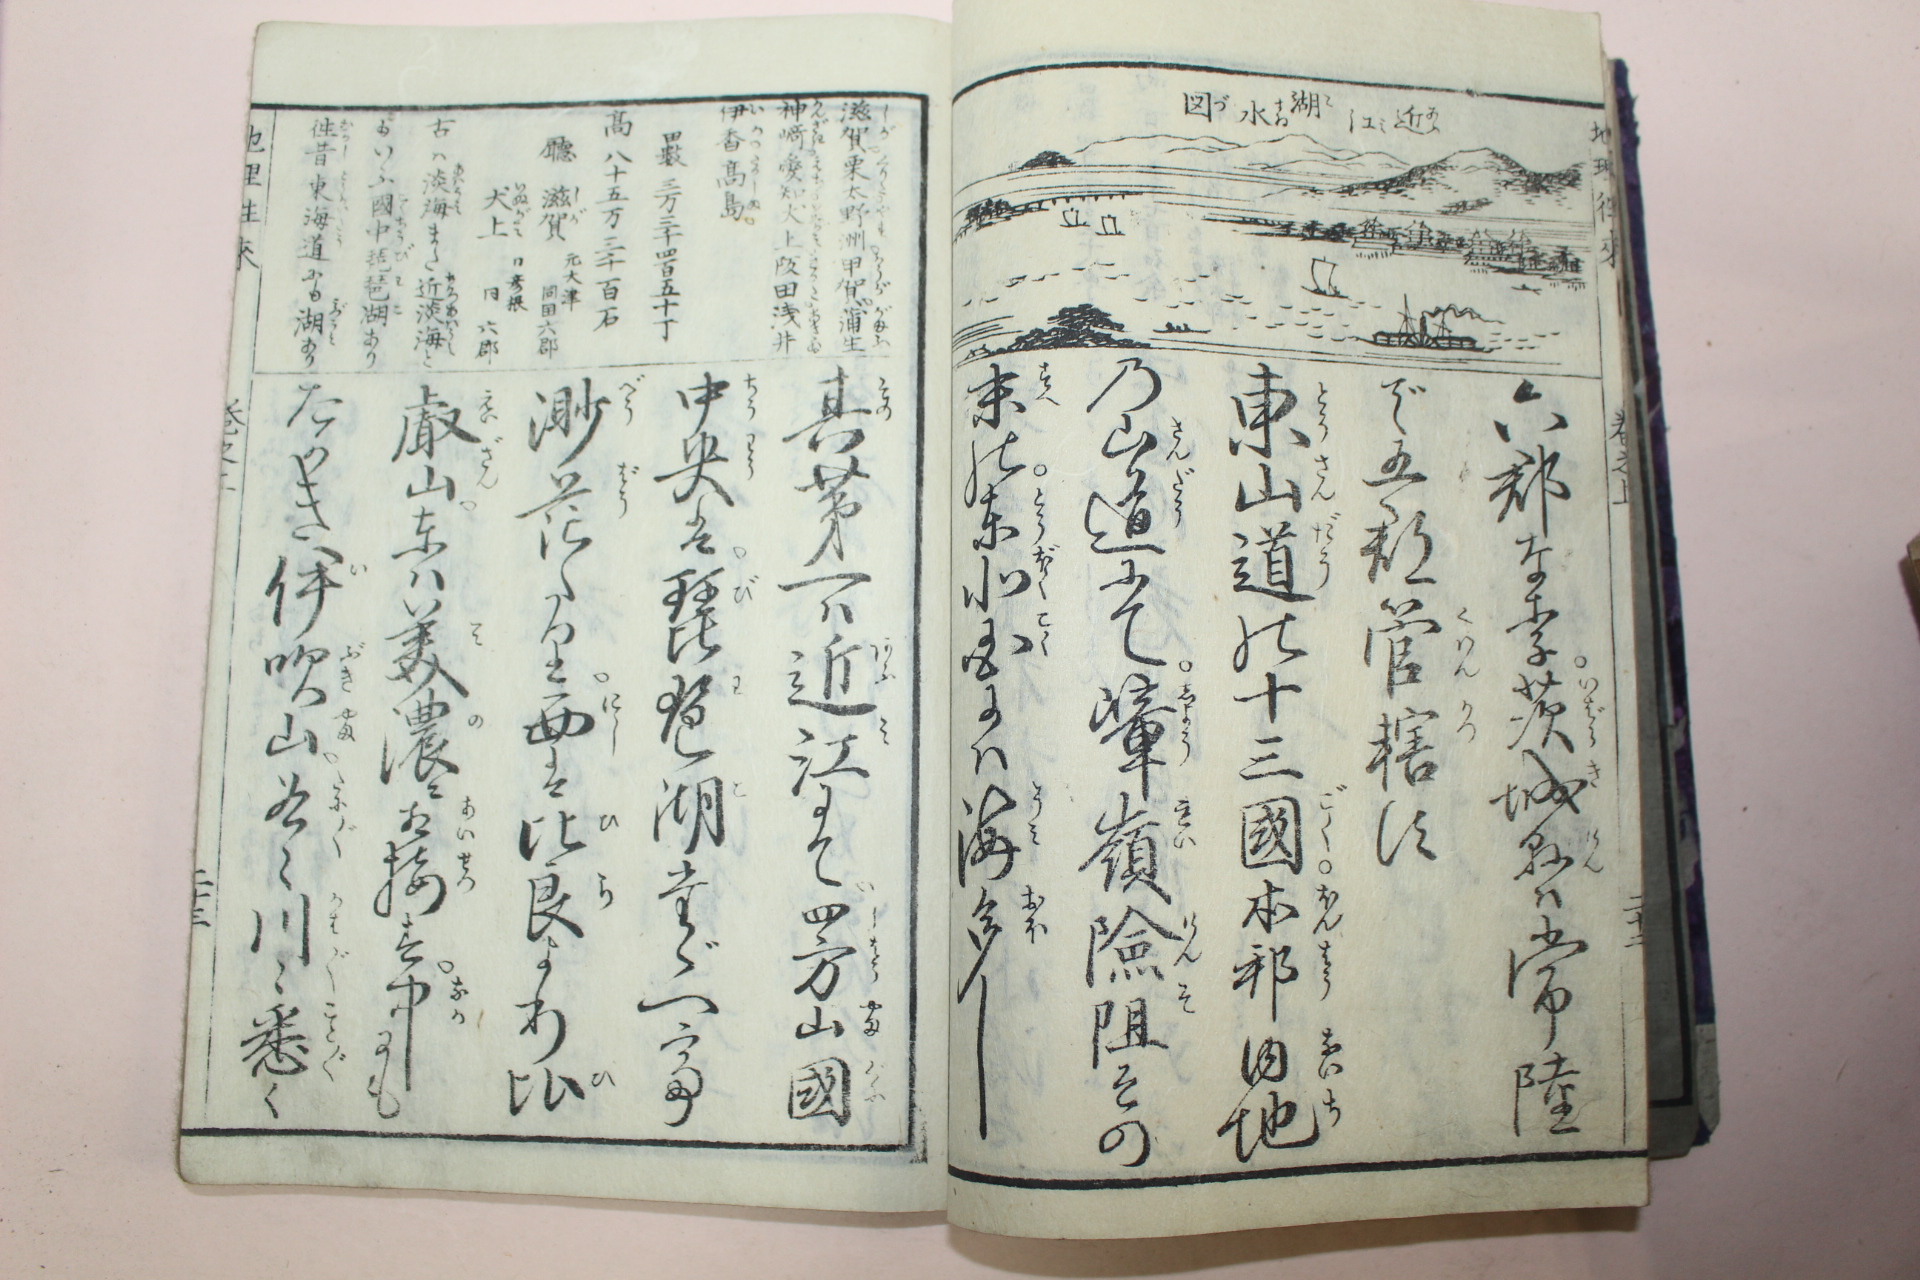 近江湖水図
六郡なり茨城県ハ常陸
で五郡管轄に
東山道の十三國本邦内地
乃山道にて嶂嶺険阻その
末の東北国よハ海多し
地理往来
巻之上
二十二
滋賀栗太野洲甲賀蒲生
神崎愛知犬上阪田浅井
伊香高島
田数 三万三千四百五十丁
高 八十五万三千百石
廳 滋賀 元大津 同国六郡
犬上 口彦根 同 六郡
古ハ淡海また近淡海と
もいふ國中琵琶湖あり
往昔東海道にも湖あり
其第一ハ近江にて四方山國
中央は琵琶湖
渺茫たり西は比良より比
叡山東ハ美濃に相接き中にも
たかきハ伊吹山谷〻川〻悉く
地理往来
二十三